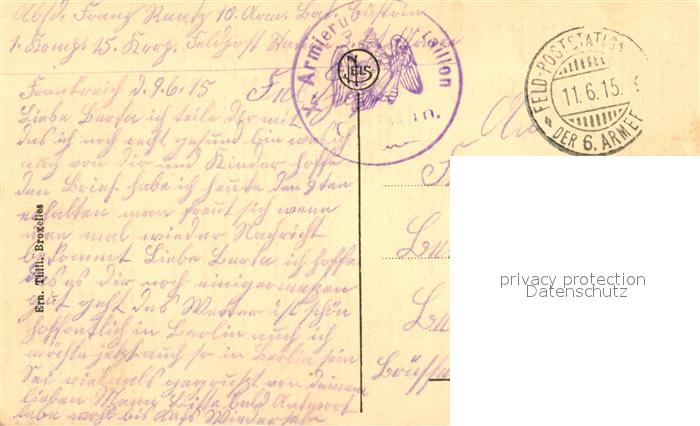 Absd. Franz Raatz 10. Arm. Bat. Cüstrin
1. Komp. 15. Korp. Feldpost
Armieru taillon
NELS
FELD-POSTSTATION
11.6.15.
DER 6. ARMEE
Frankreich d. 9.6.15
Liebe Berta ich teile Dir mit
das ich noch recht gesund bin was ich
auch von dir und Kinder hoffe
den Brief habe ich heute den 9ten
erhalten man freut sich wenn
man mal wieder Nachricht
bekommt Liebe Berta ich hoffe
das es dir noch einigermaßen
gut geht das Wetter ist schön
hoffentlich in Berlin auch ich
möchte jetzt auch so in Berlin sein
Sei vielmals gegrüßt von deinem
lieben Mann Bitte bald Antwort
lebe wohl bis aufs Wiedersehn
Ern. Thill, Bruxelles
privacy protection
Datenschutz